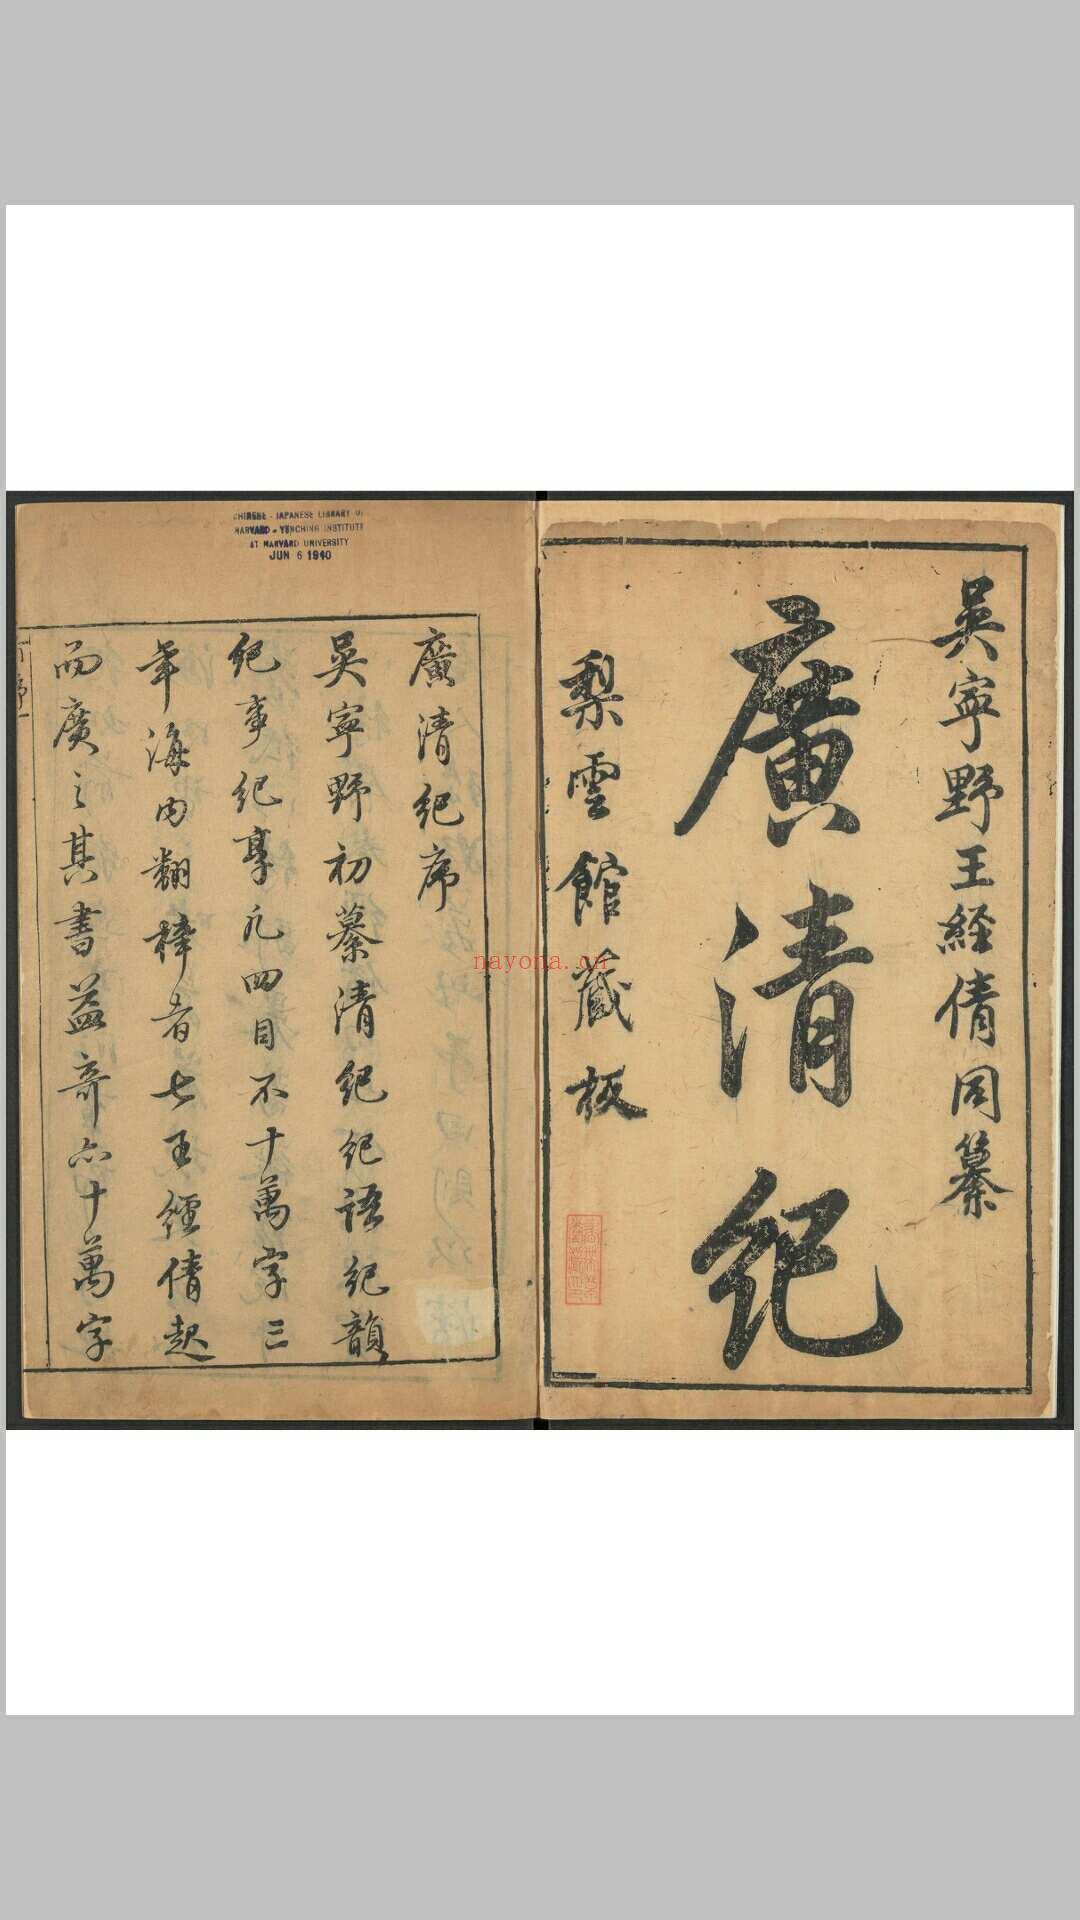 吳寧野王經倩同纂
廣清紀
梨雲館藏板
CHINESE - JAPANESE LIBRARY OF
HARVARD - YENCHING INSTITUTE
AT HARVARD UNIVERSITY
JUN 6 1940
廣清紀序
吳寧野初纂清紀紀語紀韻
紀事紀享凡四目不十萬字三
年海內翻梓者七王經倩起
而廣之其書益奇亦十萬字
nayona.cn